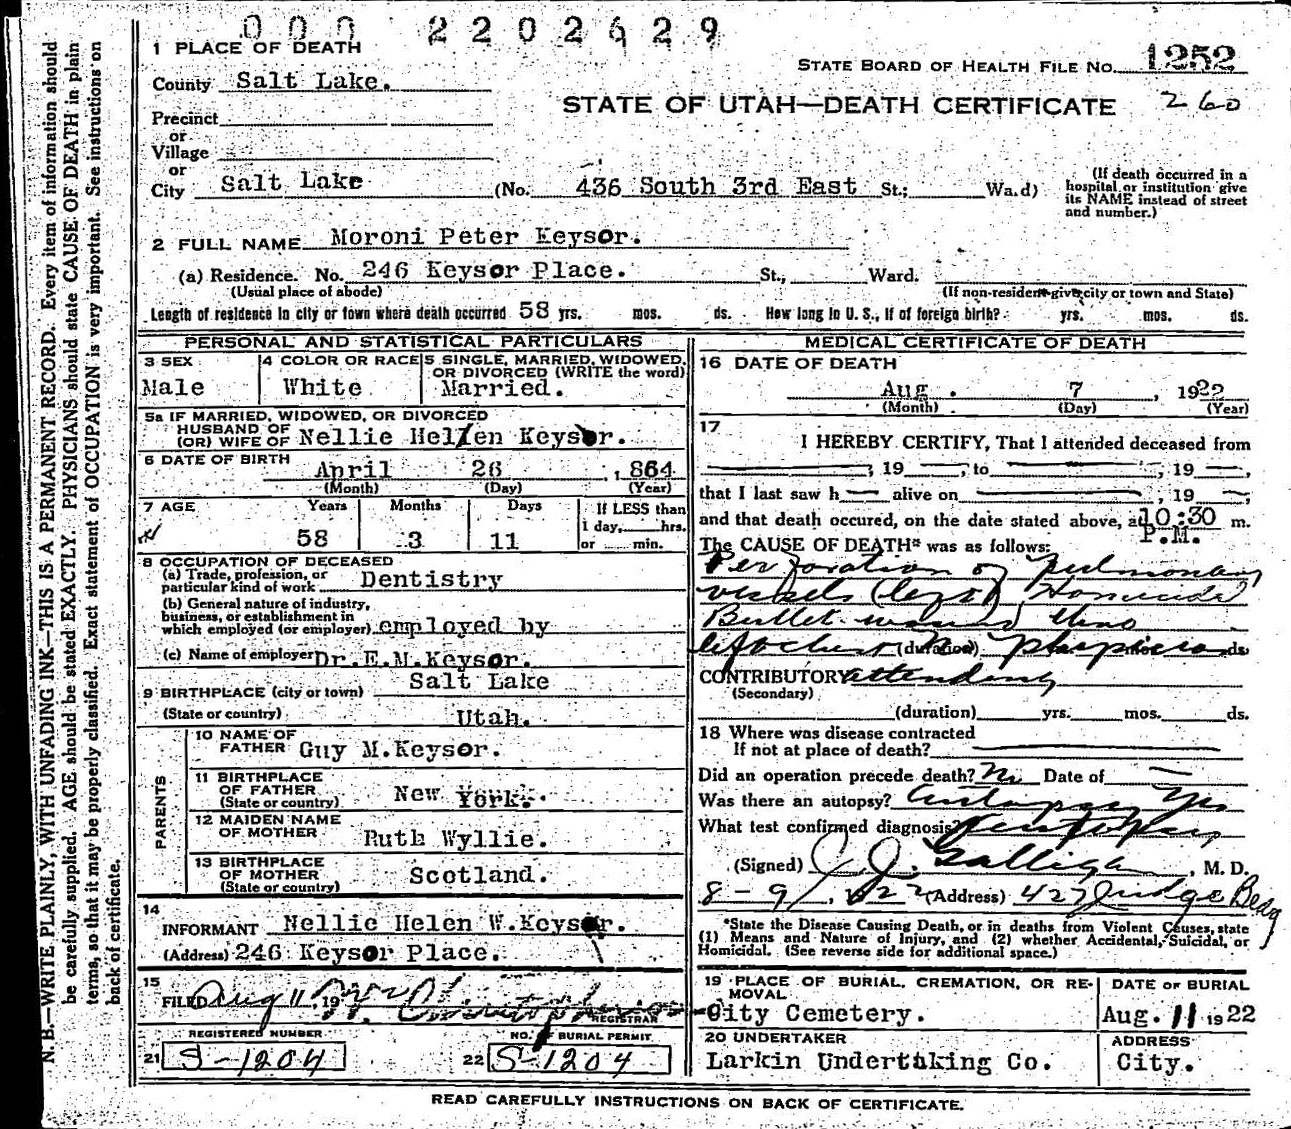 000 2202629
1 PLACE OF DEATH
STATE BOARD OF HEALTH FILE NO. 1252
County Salt Lake.
STATE OF UTAH—DEATH CERTIFICATE 260
Precinct
or
Village
or
City Salt Lake (No. 436 South 3rd East St.; Wa.d)
(If death occurred in a hospital or institution give its NAME instead of street and number.)
2 FULL NAME Moroni Peter Keysor.
(a) Residence. No. 246 Keysor Place. St., Ward.
(Usual place of abode) (If non-resident give city or town and State)
Length of residence in city or town where death occurred 58 yrs. mos. ds. How long in U. S., if of foreign birth? yrs. mos. ds.
PERSONAL AND STATISTICAL PARTICULARS
3 SEX
Male
4 COLOR OR RACE
White
5 SINGLE, MARRIED, WIDOWED, OR DIVORCED (WRITE the word)
Married.
5a IF MARRIED, WIDOWED, OR DIVORCED
HUSBAND OF
(OR) WIFE OF Nellie Helen Keysor.
6 DATE OF BIRTH
April 26 , 1864
(Month) (Day) (Year)
7 AGE Years Months Days If LESS than
1 day, hrs.
58 3 11 or min.
8 OCCUPATION OF DECEASED
(a) Trade, profession, or
particular kind of work Dentistry
(b) General nature of industry,
business, or establishment in
which employed (or employer) employed by
(c) Name of employer Dr.E.M.Keysor.
9 BIRTHPLACE (city or town) Salt Lake
(State or country) Utah.
PARENTS
10 NAME OF
FATHER Guy M.Keysor.
11 BIRTHPLACE
OF FATHER New York.
(State or country)
12 MAIDEN NAME
OF MOTHER Ruth Wyllie.
13 BIRTHPLACE
OF MOTHER Scotland.
(State or country)
14
INFORMANT Nellie Helen W.Keysor.
(Address) 246 Keysor Place.
15
FILED Aug 11, 19
REGISTRAR
REGISTERED NUMBER
21 S-1204
NO. OF BURIAL PERMIT
22 S-1204
MEDICAL CERTIFICATE OF DEATH
16 DATE OF DEATH
Aug. 7 , 1922
(Month) (Day) (Year)
17
I HEREBY CERTIFY, That I attended deceased from
, 19 , to , 19 ,
that I last saw h alive on , 19 ,
and that death occured, on the date stated above, at 10:30 m.
P.M.
The CAUSE OF DEATH* was as follows:
Perforation of pulmonary
vessels (left) Homicidal
Bullet wound thro
left chest (duration) No physician ds.
CONTRIBUTORY attending
(Secondary)
(duration) yrs. mos. ds.
18 Where was disease contracted
If not at place of death?
Did an operation precede death? No Date of
Was there an autopsy? Autopsy Yes
What test confirmed diagnosis?
(Signed) C J. Galligan, M. D.
8-9/, 1922 (Address) 427 Judge Bldg
*State the Disease Causing Death, or in deaths from Violent Causes, state
(1) Means and Nature of Injury, and (2) whether Accidental, Suicidal, or
Homicidal. (See reverse side for additional space.)
19 PLACE OF BURIAL, CREMATION, OR RE-
MOVAL
City Cemetery.
DATE OF BURIAL
Aug. 11 1922
20 UNDERTAKER
Larkin Undertaking Co.
ADDRESS
City.
READ CAREFULLY INSTRUCTIONS ON BACK OF CERTIFICATE.
N. B.—WRITE PLAINLY, WITH UNFADING INK—THIS IS A PERMANENT RECORD. Every item of information should
be carefully supplied. AGE should be stated EXACTLY. PHYSICIANS should state CAUSE OF DEATH in plain
terms, so that it may be properly classified. Exact statement of OCCUPATION is very important. See instructions on
back of certificate.